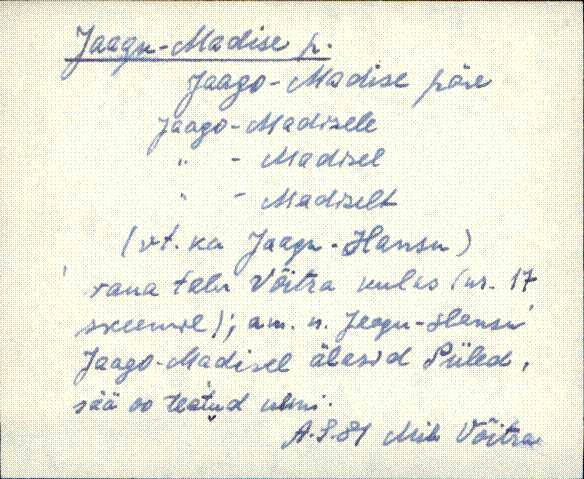 Jaagu-Madise p.
Jaago-Madise päre
Jaago-Madisele
" - Madisel
" - Madiselt
(vt. ka Jaagu-Hansu)
vana talu Võitra külas (nr. 17
skeemil); a.m. n. Jaagu-Hansu
Jaago-Madisel älasid Piiled,
sää oo teatud
A.S.81 Mih Võitra